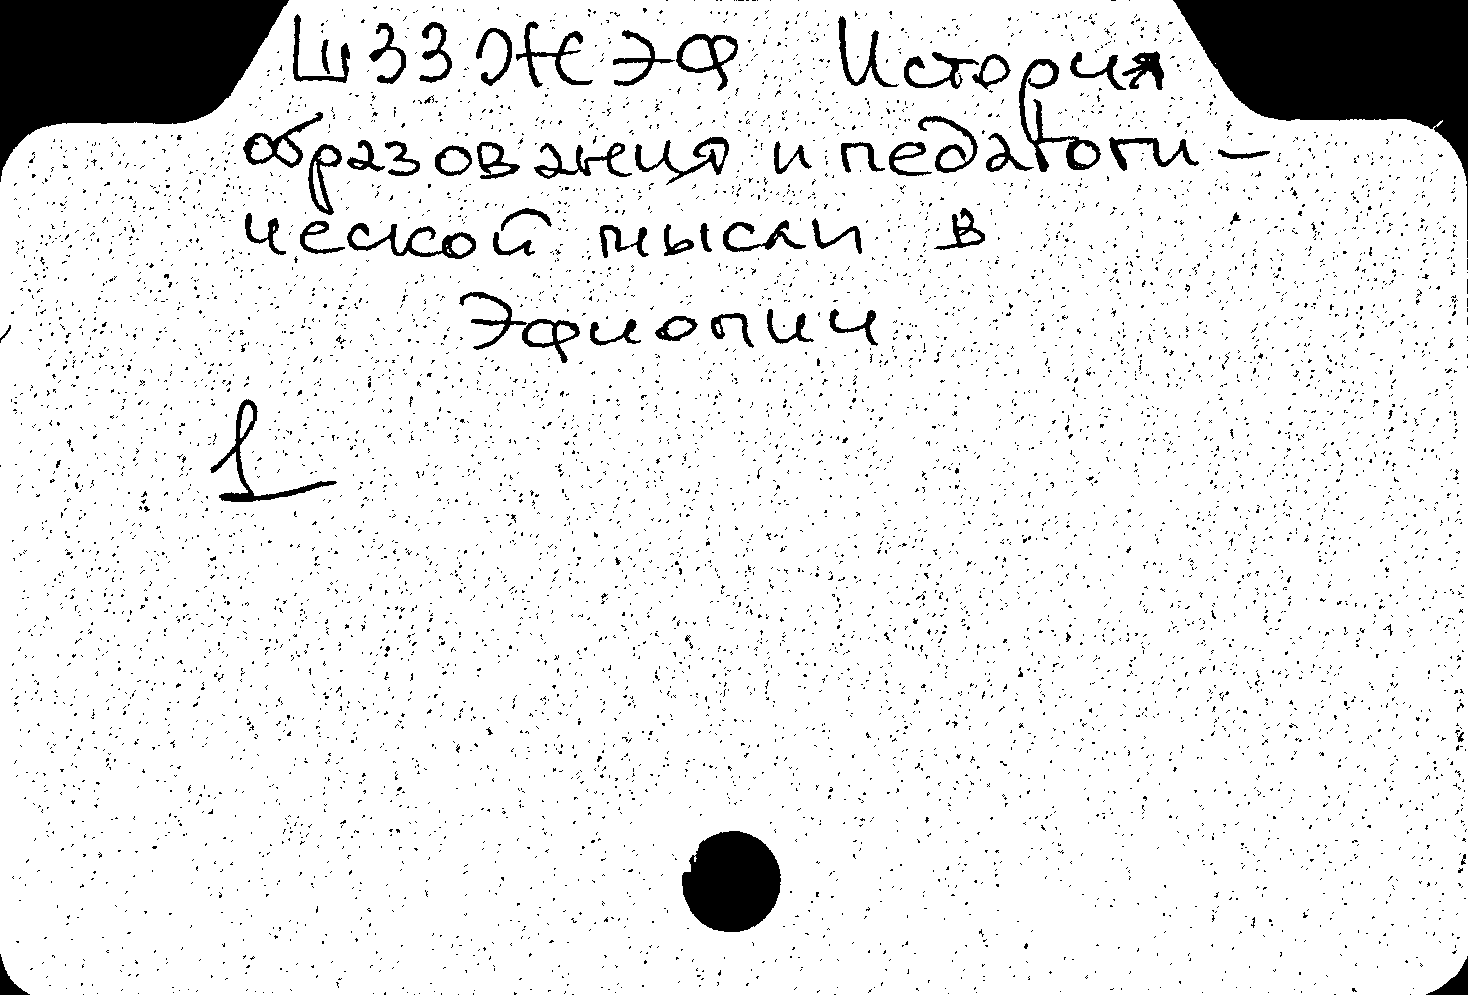 Ш33ЖЭФ История
образования и педагоги-
ческой мысли в
Эфиопии
1